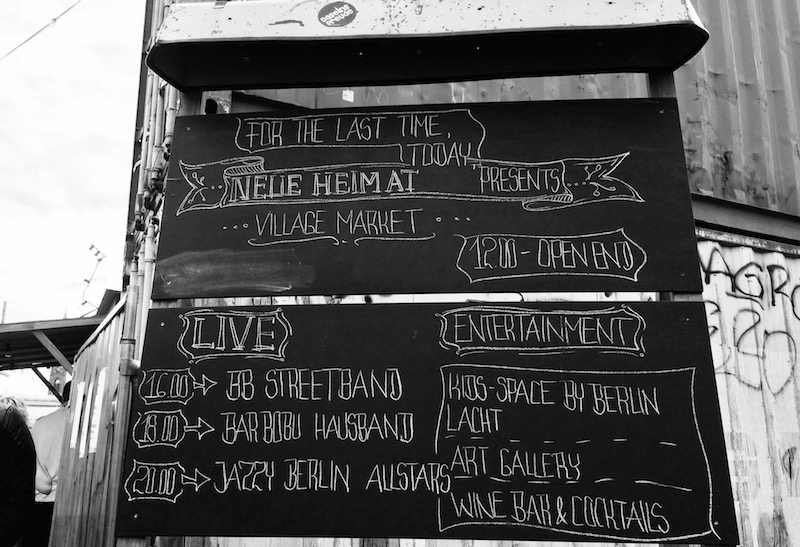 FOR THE LAST TIME,
TODAY
NEUE HEIMAT PRESENTS
VILLAGE MARKET
12.00 - OPEN END
LIVE
16.00 → BB STREETBAND
18.00 → BAR BOBU HAUSBAND
20.00 → JAZZY BERLIN ALLSTARS
ENTERTAINMENT
KIDS-SPACE BY BERLIN
LACHT
ART GALLERY
WINE BAR & COCKTAILS